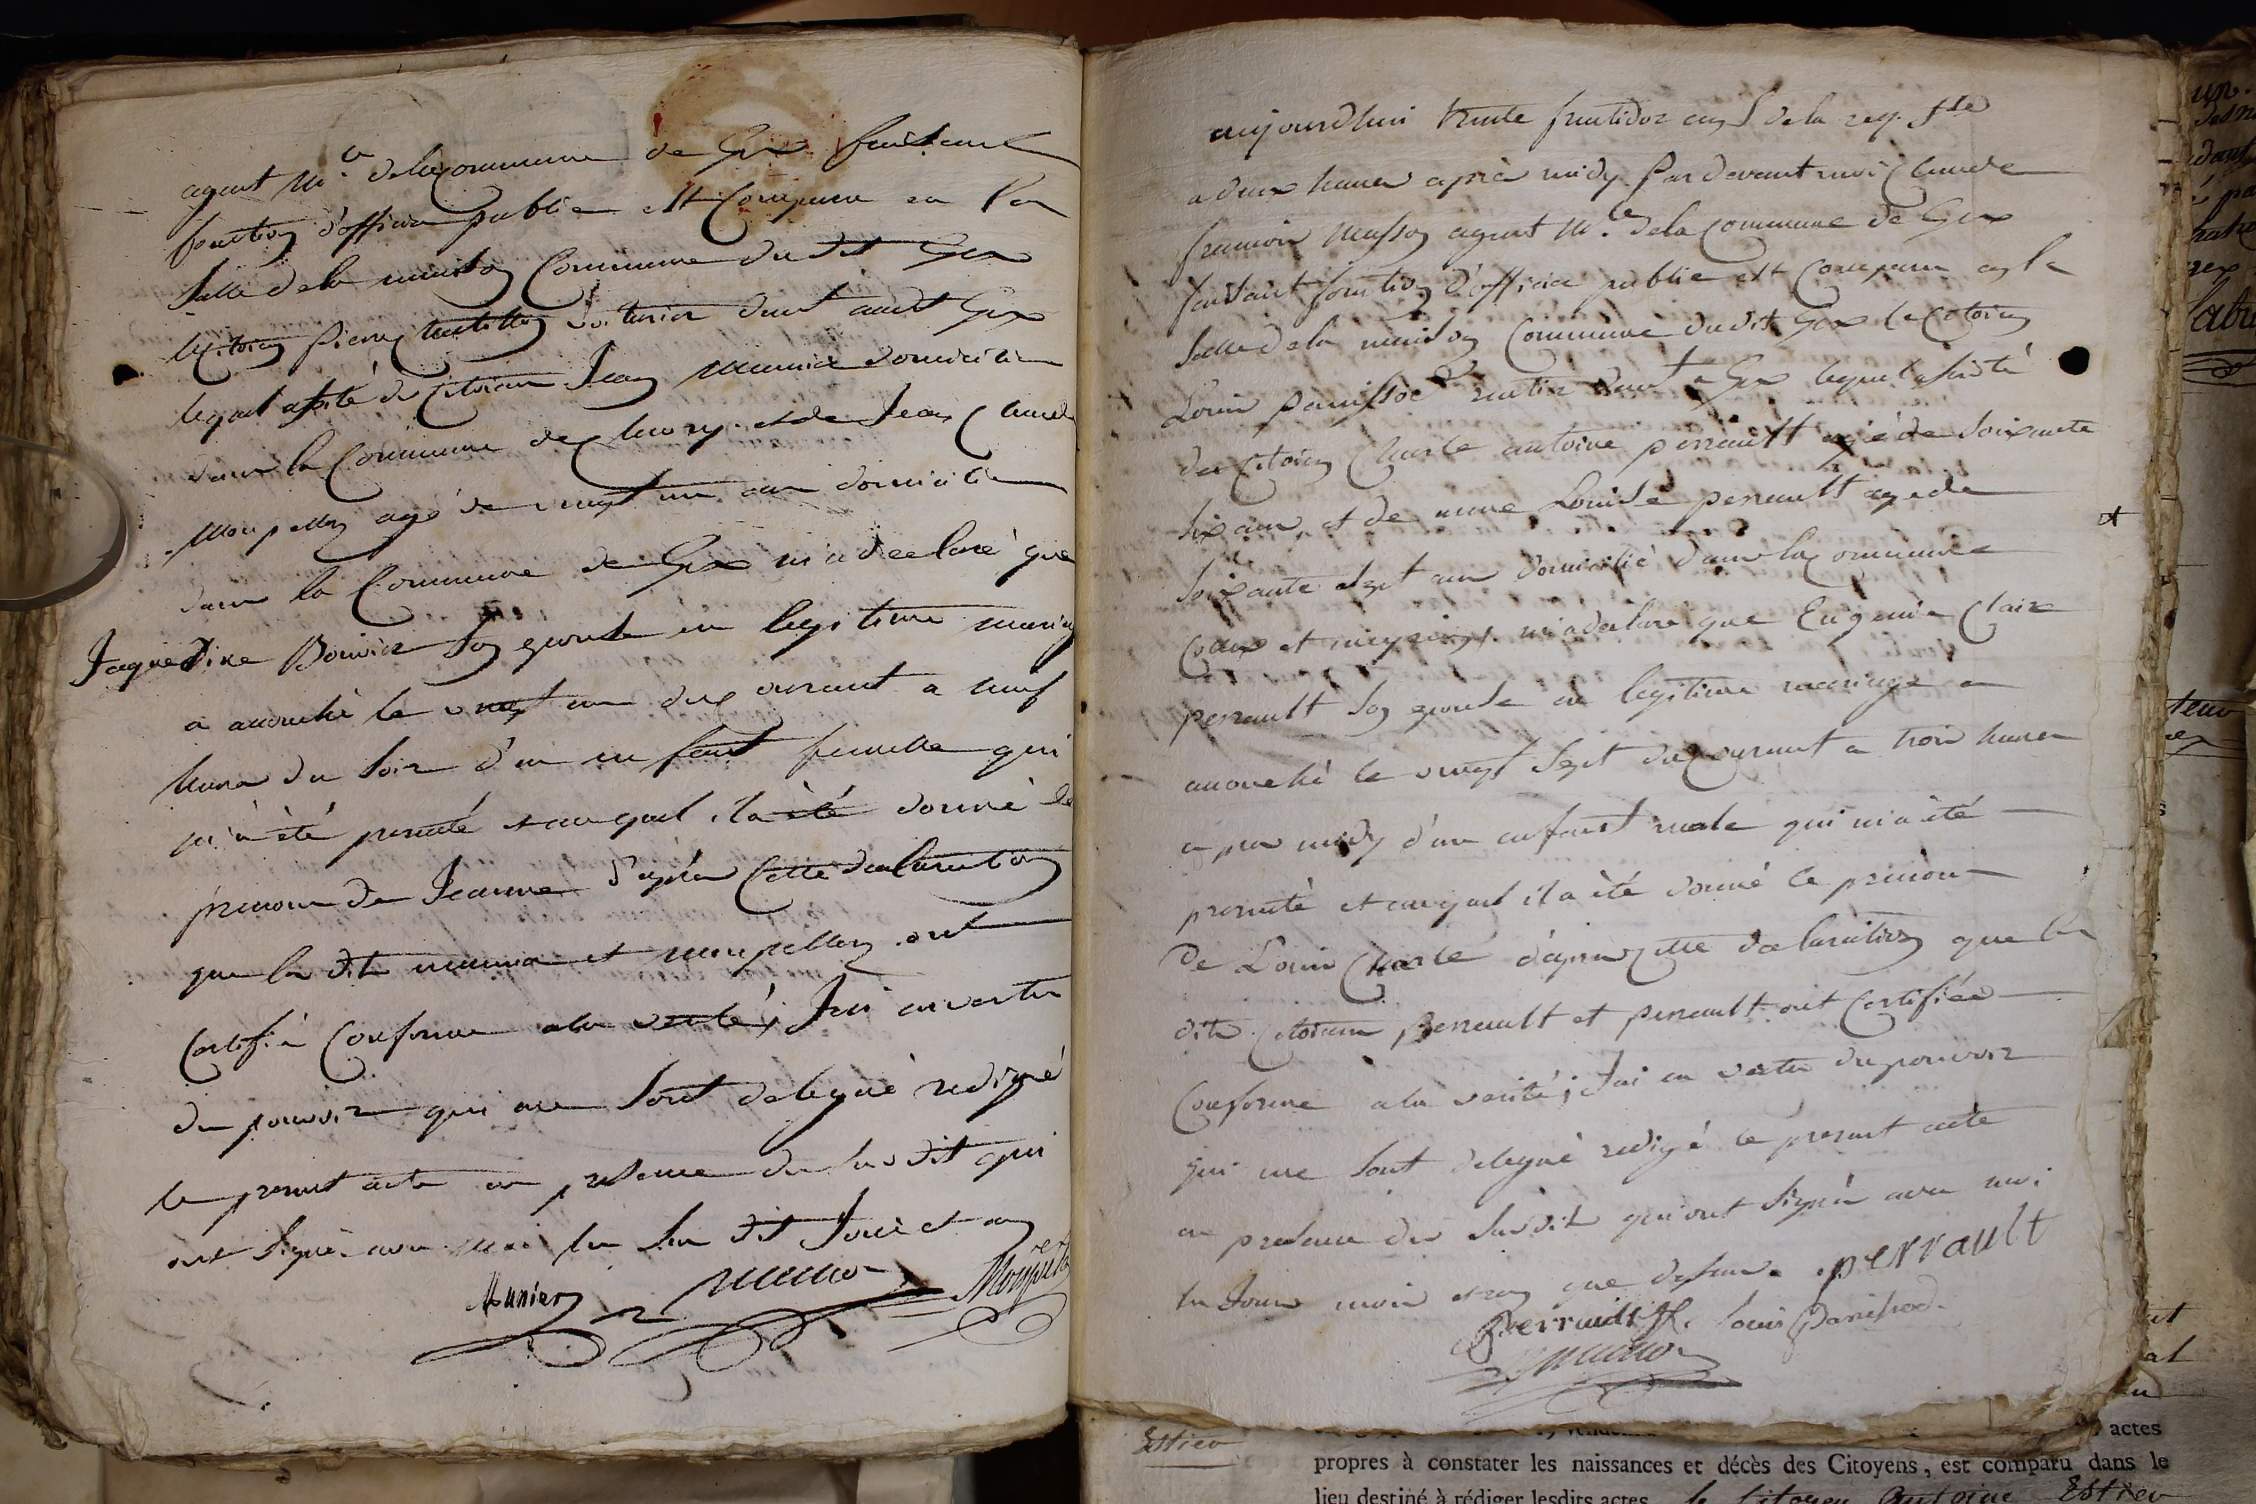 agent m.al de la commune de Gex faisant
fonction d'officier public est comparu en la
salle de la maison commune du dit Gex
le citoien pierre dmt audt Gex
lequel assisté des citoiens Jean munier domicilié
dans la commune de et de Jean Claude
Monpellaz agé de vingt un ans domicilié
dans la commune de Gex m'a declaré que
Jaquedine Bouvier son epouse en legitime mariage
a accouché le vingt un du courant a neuf
heures du soir d'un enfant femelle qui
m'a été presenté et auquel il a été donné le
prenom de Jeanne d'après cette declaration
que les dits munier et monpellaz ont
certifié conforme a la verité, J'ai en vertu
du pouvoir qui me sont delegué redigé
le present acte en presence du susdit qui
ont signé avec moi les susdit Jour et an
Munier
aujourdhui trente fructidor an 5 de la rep. fse
a deux heures après midy pardevant moi Claude
francois Masson agent m.al de la commune de Gex
faisant fonction d'officier public est comparu en la
salle de la maison commune du dit Gex le citoien
Louis panissod rentier dmt a Gex lequel assisté
des citoien Charle antoine perrault agé de soixante
six ans, et de anne Louise perrault agé de
soixante et sept ans domicilié dans la commune
m'a declaré que Eugenie Claire
perrault son epouse en legitime mariage a
accouché le vingt sept du courant a trois heures
apres midy d'un enfant male qui m'a été
presenté et auquel il a été donné le prenom
De Louis Charle d'après cette declaration que les
dits citoiens perrault et perrault ont certifiée
conforme a la verité, J'ai en vertu du pouvoir
qui me sont delegué redigé le present acte
en presence des susdit qui ont signé avec moi
les Jour mois et an que dessus. perrault
Louis Panissod
actes
propres à constater les naissances et décès des Citoyens, est comparu dans le
lieu destiné à rédiger lesdits actes le Citoyen Antoine Estieu
Estieu